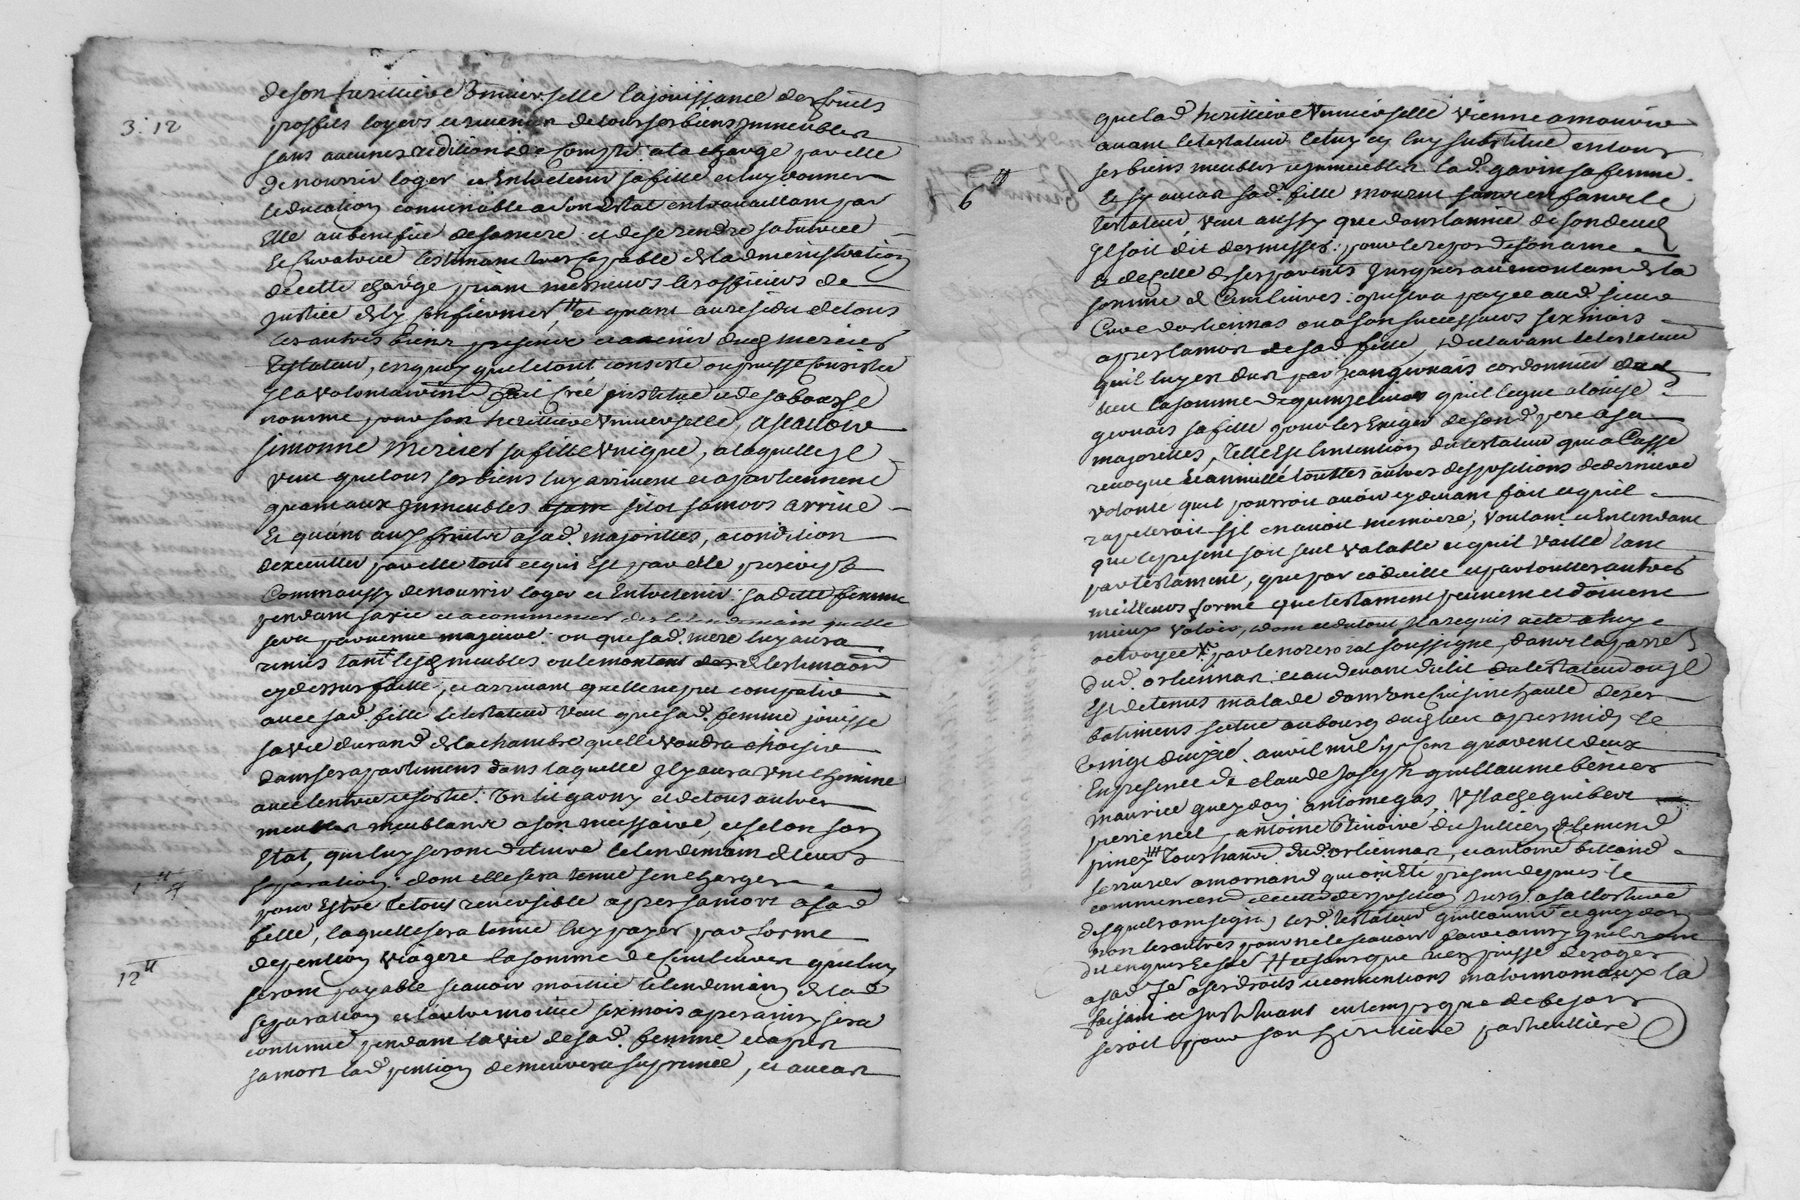 de son heritiere Universelle la jouissance des fruits
3: 12
proffits loyers et revenus de tous ses biens Immeubles
sans aucunes reditions de compte a la charge par elle
de nourrir loger et Entretenir sa fille et luy donner
l'education convenable a son Estat en travaillant par
Elle au benefice de sa mere et de se rendre sa tutrice
et Curatrice l'estimant tres capable de l'administration
de cette charge priant messieurs les officiers de
justice de ly confirmer, et quant au residu de tous
les autres biens presents et avenir dud mercier
Testateur, en quoy que le tout consiste ou puisse Consister
Il a volontairemt fait Créé institué et de sa bouche
nommé pour son heritiere Universelle, ascavoir
simonne Mercier sa fille Unique, a laquelle Il
veut que tous ses biens luy arrivent et apartiennent
quant aux Immeubles sitot sa mort arrivé
Et quant aux fruits a sad. majorités, a condition
dexecutter par elle tout ce qui Est par elle prescript
Comm aussy de nourrir loger et Entretenir sa ditte femme
pendant sa vie et a commencer des le lendemain quelle
sera parvenue majeure ou que sad. mere luy aura
remis tant lesd meubles ou le montant de l'estimaon
cy dessus faitte, et arrivant quelle ne put compatir
avec sad. fille le testateur veut que sad. femme jouisse
sa vie durand de la chambre quelle voudra choisir
dans ses apartements dans laquelle Il y aura une cheminé
avec l'entrée et sortie. Un lit garny et de tous autres
meubles meublants a son necessaire, et selon son
Etat, qui luy seront delivré le lendemain de leurs
separation dont elle sera tenue sen charger
pour Estre le tout reversible apres sa mort a sad
fille, laquelle sera tenue luy payer par forme
12
de pention viagere la somme de six livres qui luy
seront payable scavoir moitié le lendemain de lad
separation et l'autre moitié six mois apres ainsy sera
continué pendant la vie de sad. femme et apres
sa mort lad pention demeurera suprimée, et au cas
que lad heritiere Universelle vienne a mourir
avant le testateur celuy cy luy substitue en tous
ses biens meubles et immeubles lad. gavin sa femme.
6
et sy au cas sad. fille mourut sans enfans le
Testateur, veut aussy que dans l'année de son deceds
Il soit dit des messes: pour le repos de son ame
et de Celle de ses parents jusques au montant de la
somme de Cent livres: qui sera payée aud. sieur
Curé dorliennas ou a son successeurs six mois
apres la mort de sad fille, declarant le testateur
quil luy est dus par jean gervais cordonnier dud
lieu la somme de quinze livres qu'il legue a louise
gervais sa fille pour les Exiger de son d. pere a sa
majorittés, Telle Est l'intention du testateur qui a Cassé
revoqué et annullé touttes autres dispositions de derniere
volonté quil pourroit avoir cy devant fait et quil
rapelleroit s'il en avoit memoire, Voulant et Entendant
que le present soit seul valable et quil vaille tant
par testament, que par codicille et par touttes autres
meilleurs forme que testament peuvent et doivent
mieux valoir, dont et du tout Il a requis acte a luy
octroyée par le nore royal soussigné, dans la parre
dud. orliennas et au devant du lit du testateur ou Il
Est detenus malade dans une Cuisine haute de ses
batiments scitué au bourg dud lieu apres midy le
vingt deuxe. avril mil sept cent quarente deux
En presence de claude Joseph guillaume benier
maurice gueydon antoine gas Ustache guibert
pierre neel, antoine Rivoire du Jullien Clement
piney Tous habants dud. orliennas, et antoine billaud
serrurier a mornand qui ont Eté present depuis le
commencemt de cette disposition jusq. a sa closture
desquels ont signé, led. testateur guillaume et gueydon
non les autres pour ne le scavoir faire ainsy quils ont
dit enquis Et somé et sans que rien puisse deroger
a sad fe a ses droits et conventions matrimoniaux la
faisant et instituant en temps que de besoins
seroit pour son heritiere particulliere